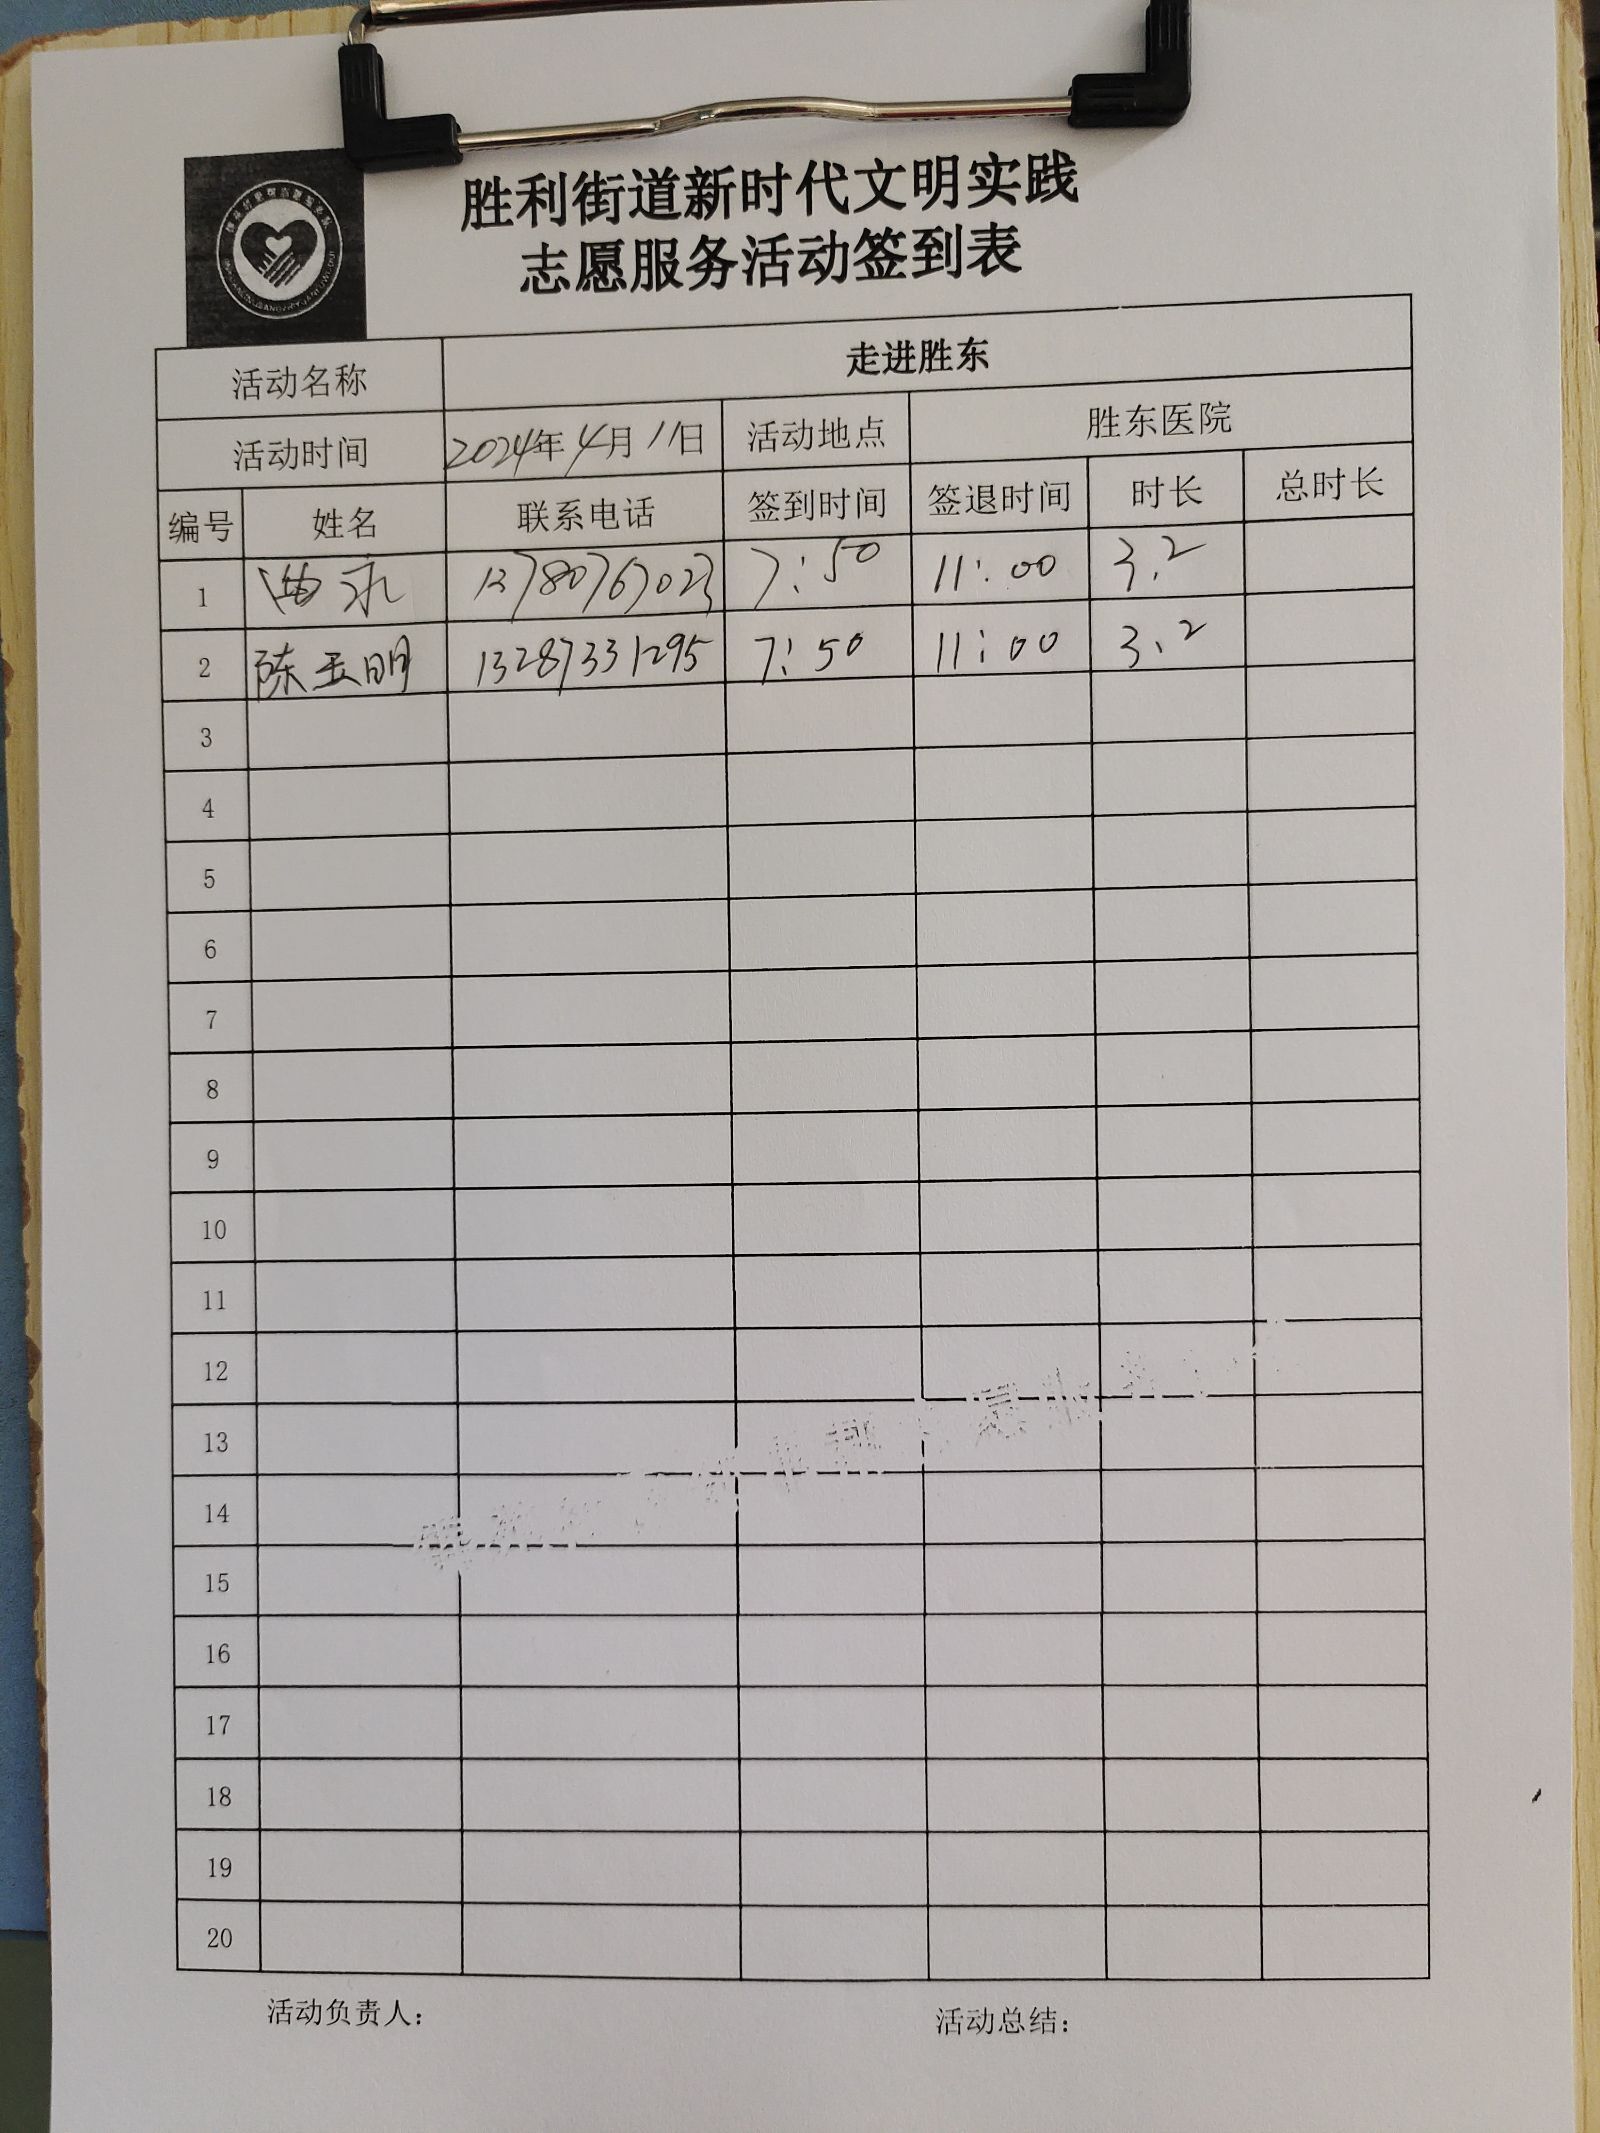 胜利街道新时代文明实践
志愿服务活动签到表
活动名称 走进胜东
活动时间 2024年4月11日 活动地点 胜东医院
编号 姓名 联系电话 签到时间 签退时间 时长 总时长
1 13780767023 7:50 11:00 3.2
2 陈玉明 13287331295 7:50 11:00 3.2
3
4
5
6
7
8
9
10
11
12
13
14
15
16
17
18
19
20
活动负责人： 活动总结：